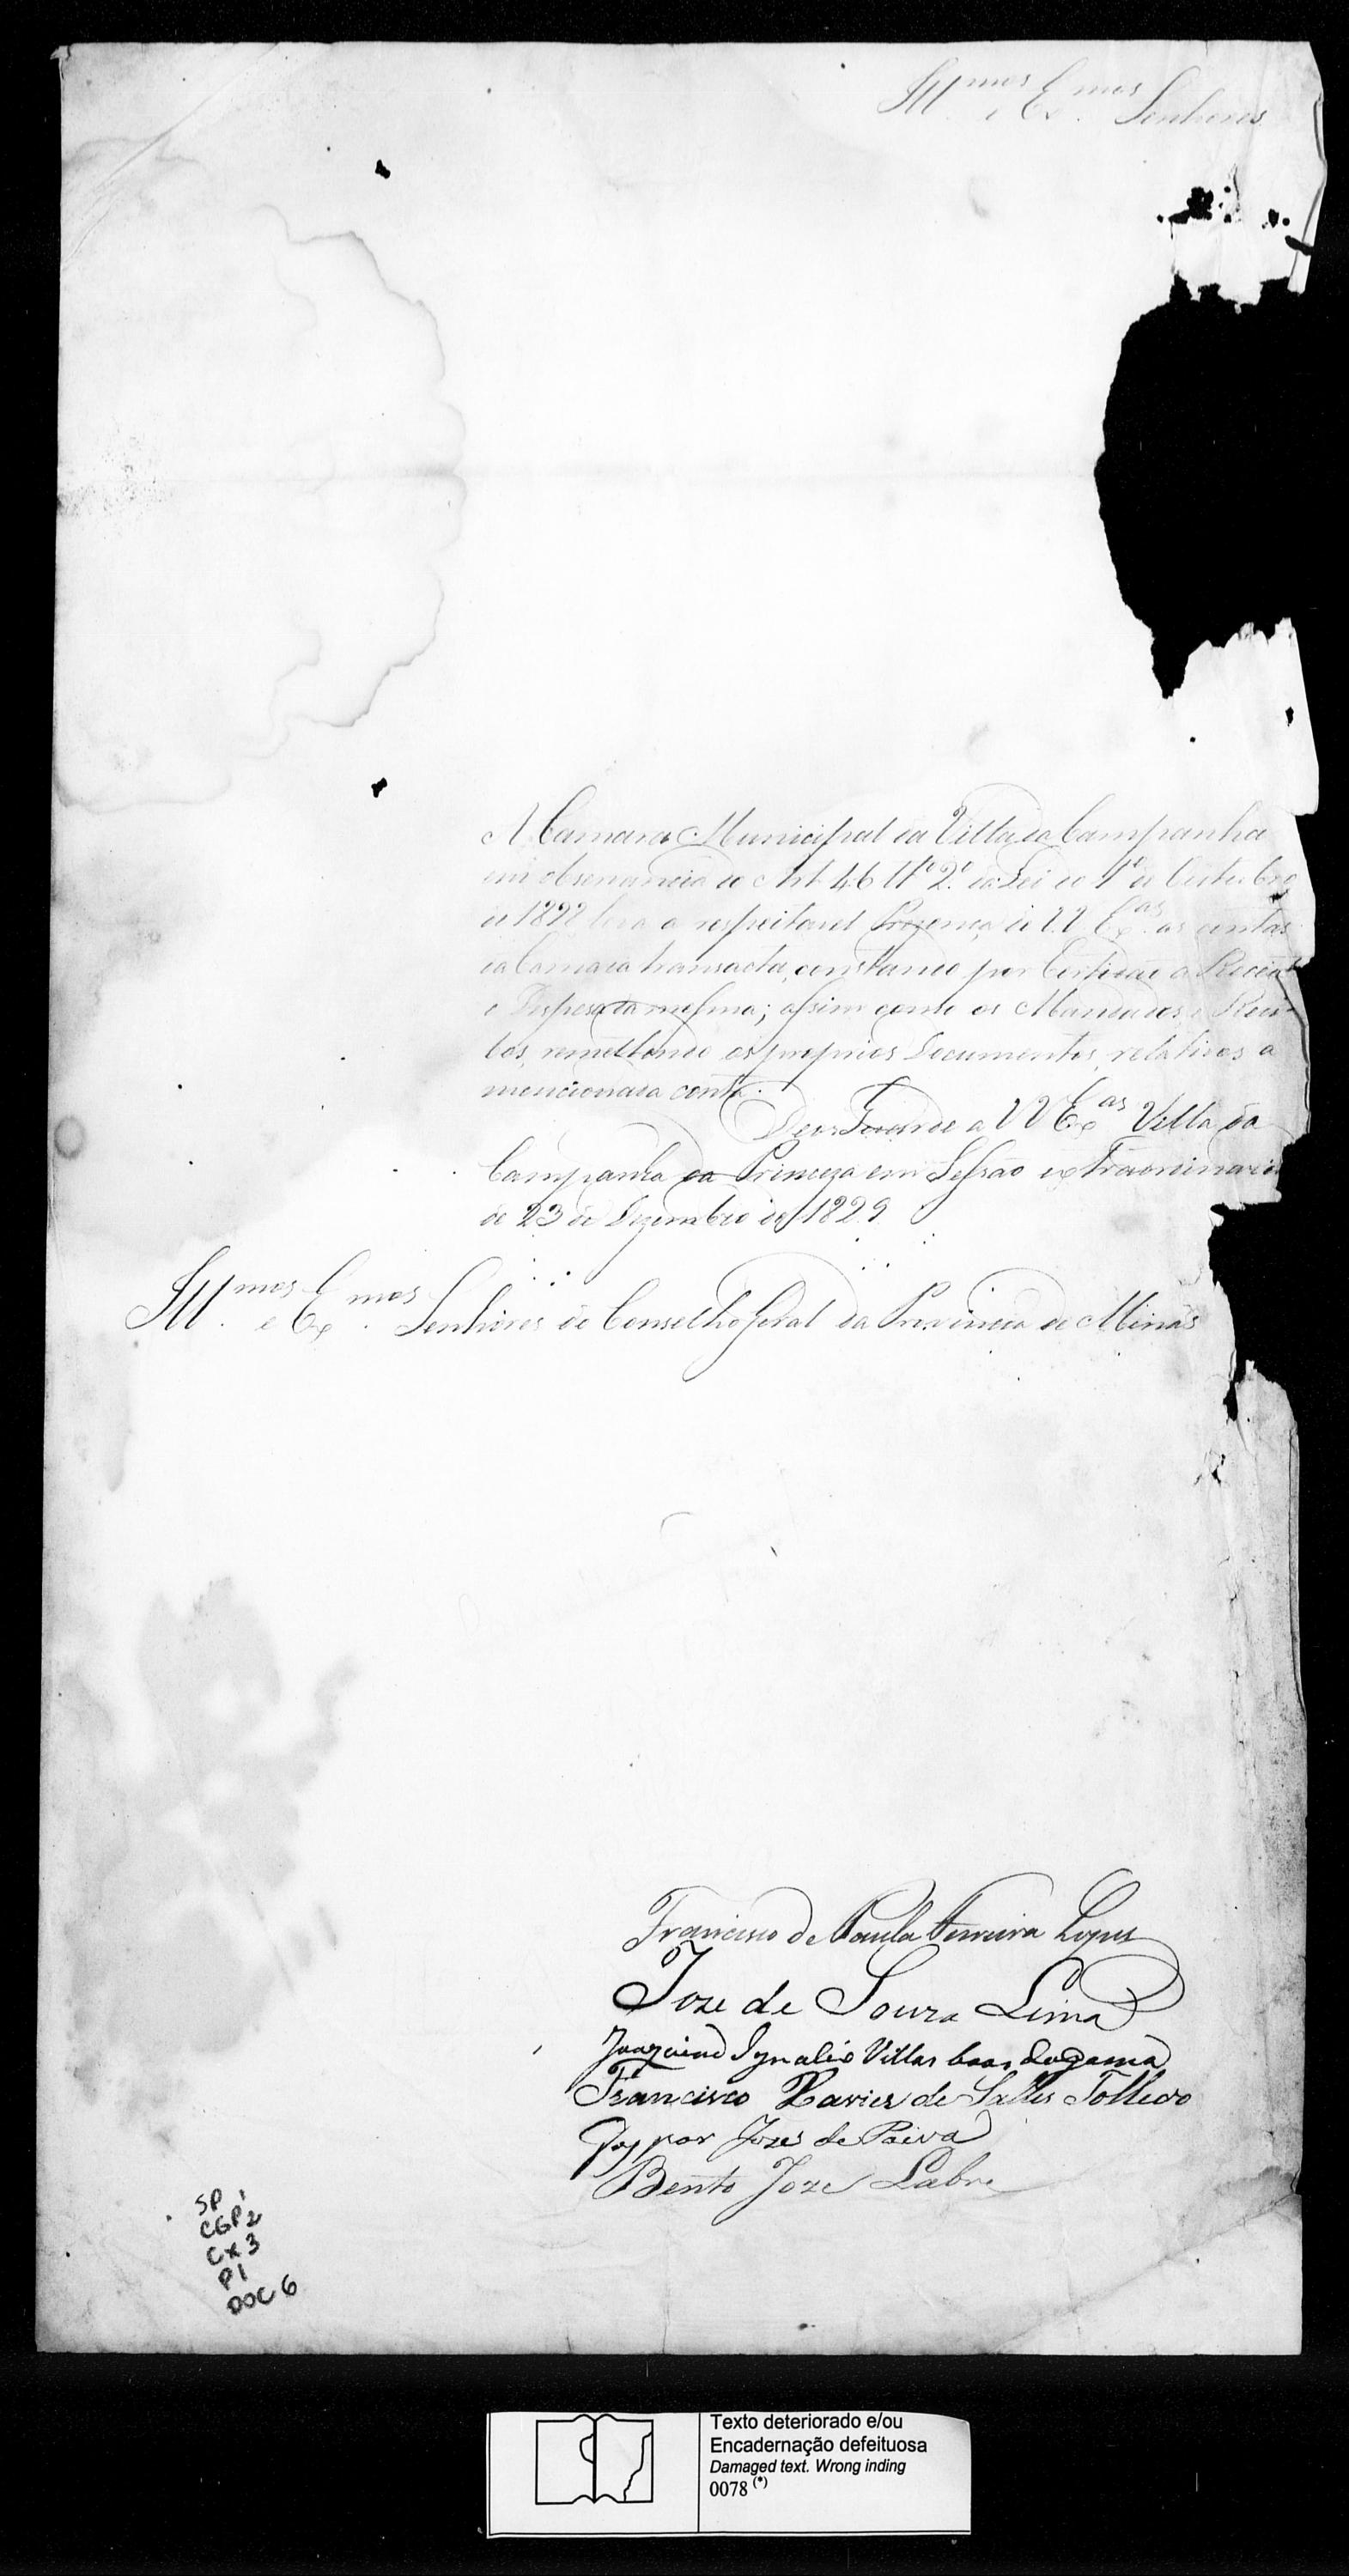 Ill.mos e Ex.mos Senhores
A Camara Municipal da Villa da Campanha
em observancia do Art. 46 N.º 2.º da Lei do 1.º de Outubro
de 1828 leva a respeitavel Prezença de VV Ex.as as contas
da Camara transacta, constando por Certidão a Receita
e Despesa da mesma; assim como os Mandados, e Reci-
bos, remettendo os proprios Documentos, relativos a
mencionada conta.
Deos Guarde a VV Ex.as Villa da
Campanha da Princeza em Sessão extraordinaria
de 23 de Dezembro de 1829.
Ill.mos e Ex.mos Senhores do Conselho Geral da Provincia de Minas
Francisco de Paula Ferreira Lopes
Joze de Souza Lima
Joaquim Ignalio Villas boas dagama
Francisco Xavier de Salles Tolledo
Gaspar Joze de Paiva
Bento Joze Labre
SP
CGP 2
CX 3
P1
DOC 6
Texto deteriorado e/ou
Encadernação defeituosa
Damaged text. Wrong inding
0078 (*)